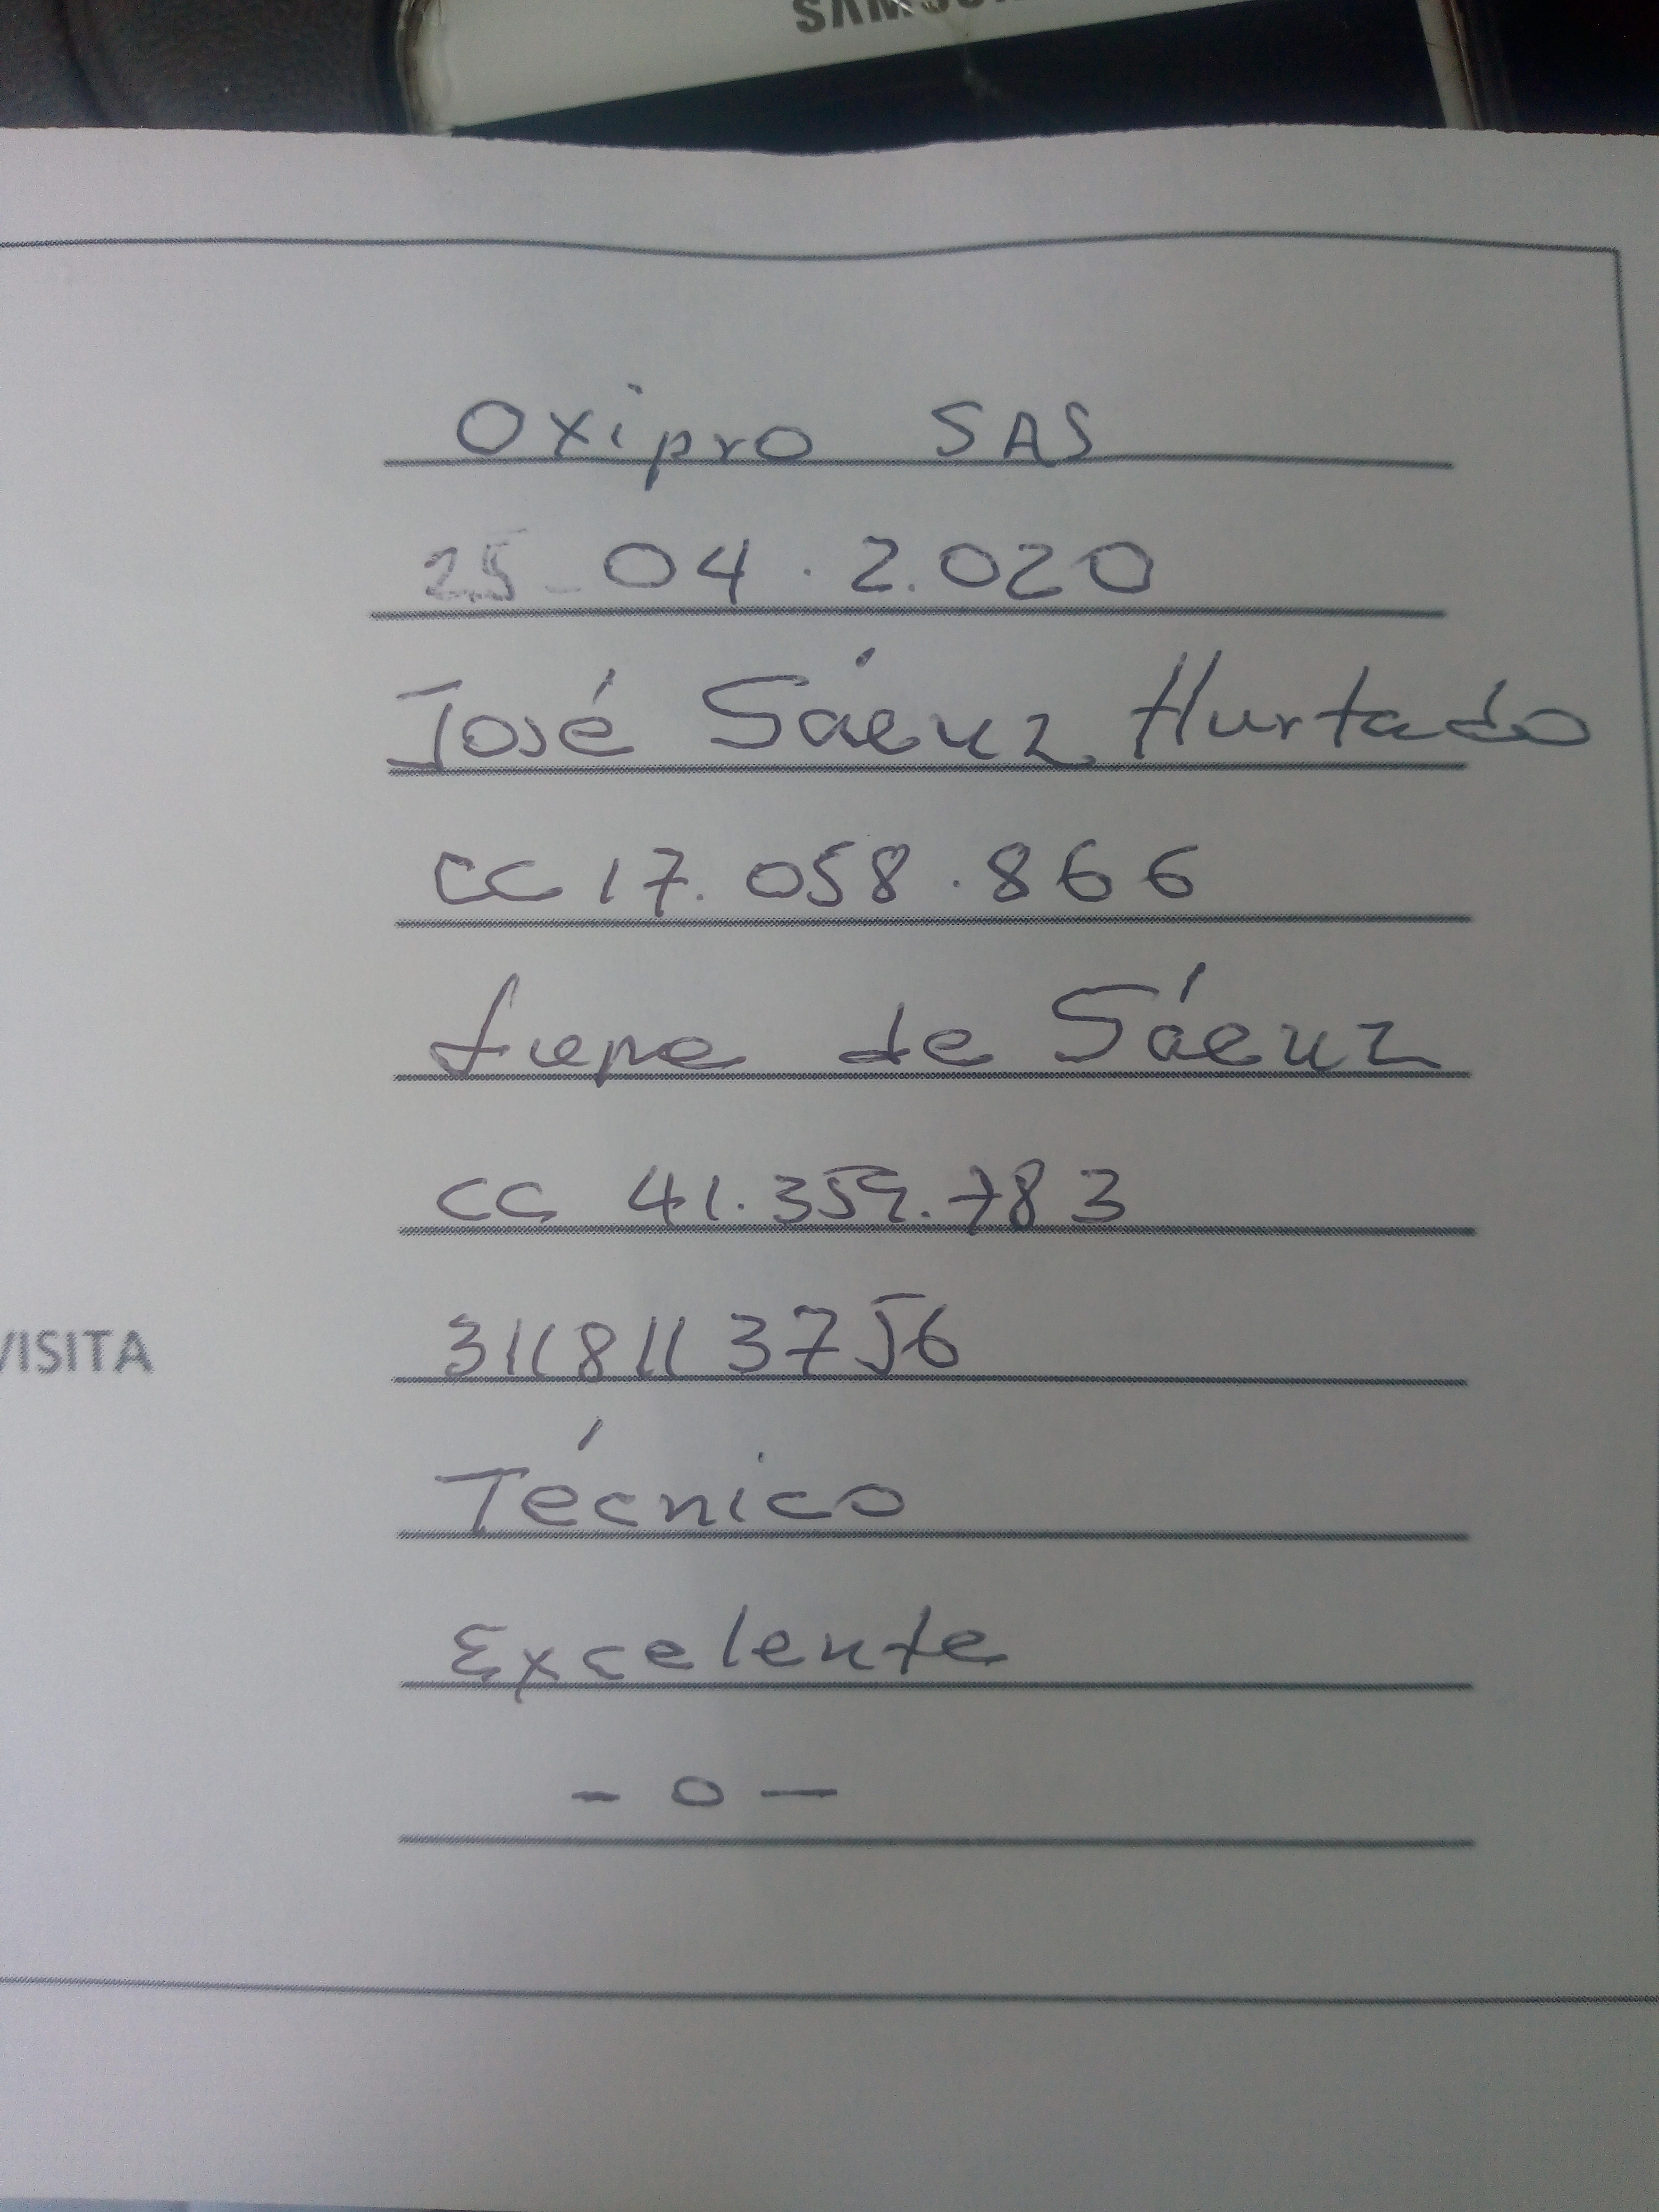 SAMSU
Oxipro SAS
25-04.2.020
José Sáenz Hurtado
CC 17.058.866
Lupe de Sáenz
CC 41.359.783
VISITA 3118113756
Técnico
Excelente
- 0 -